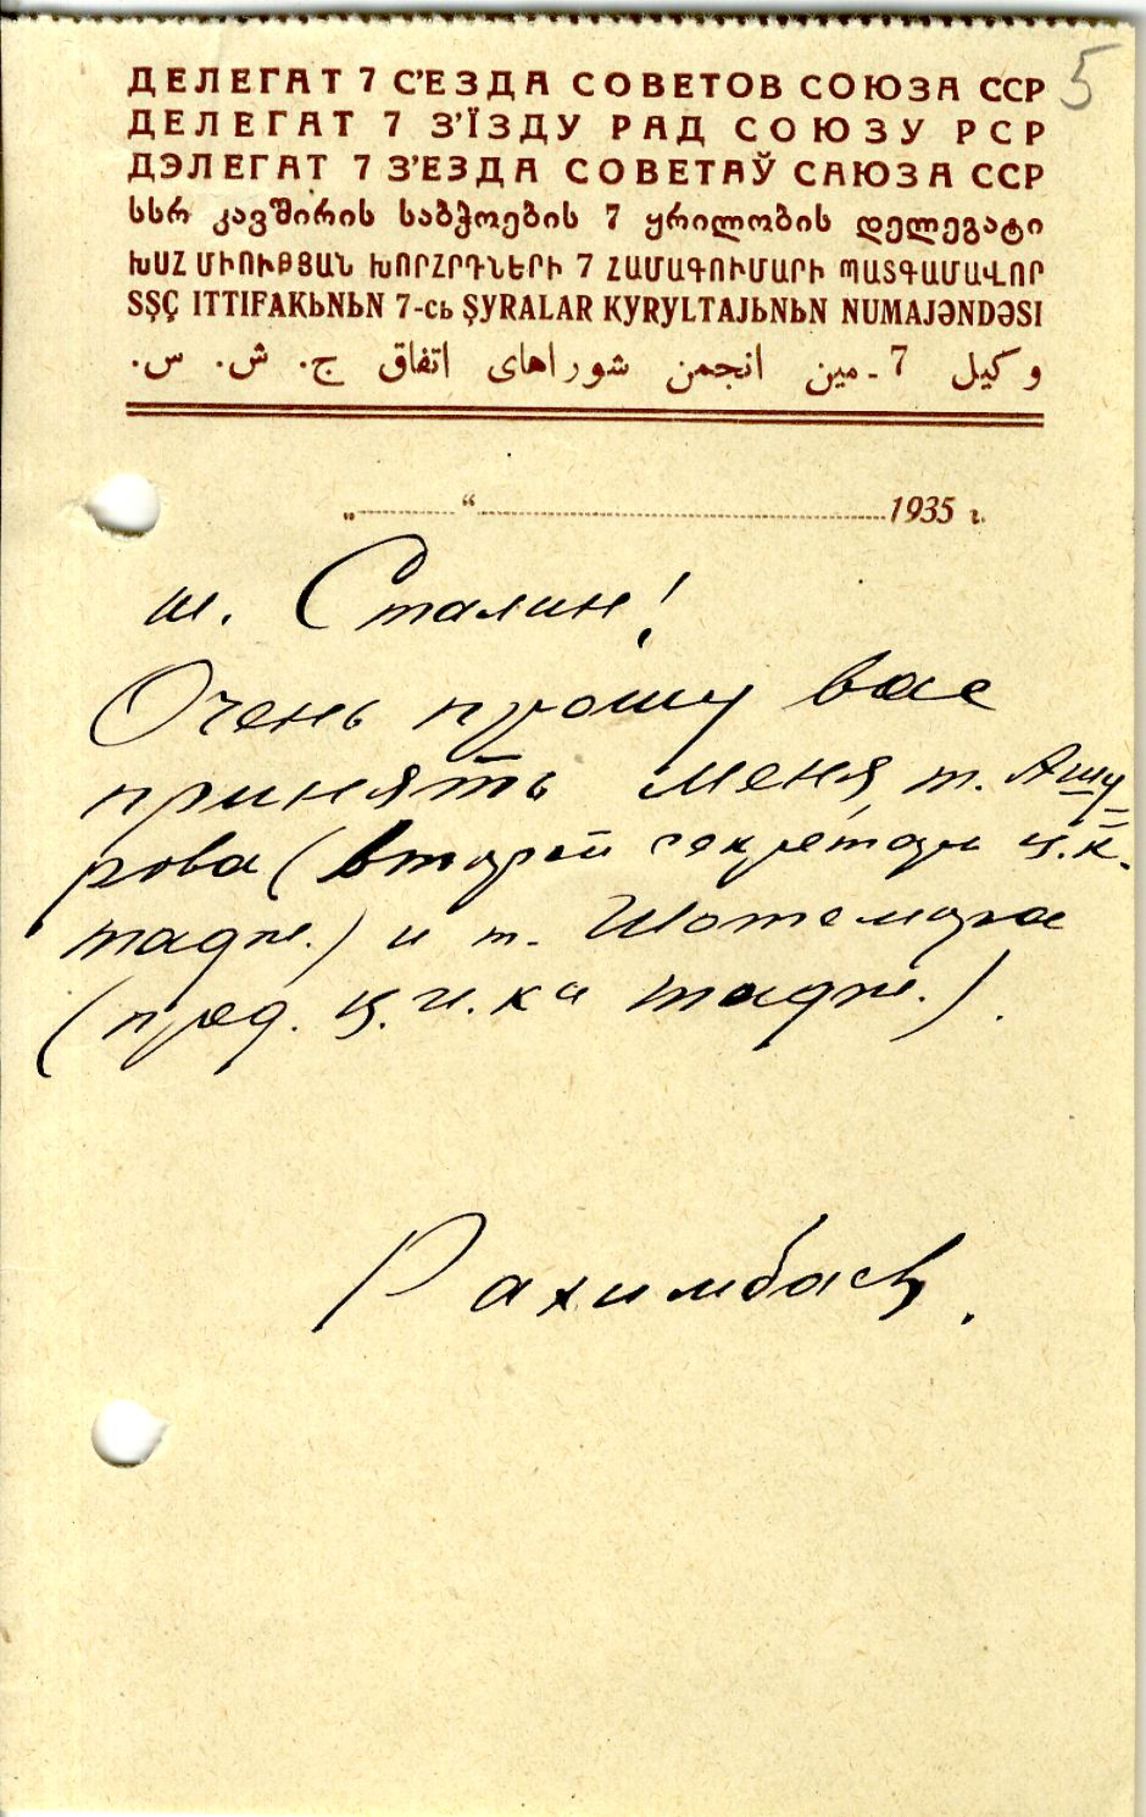 ДЕЛЕГАТ 7 С'ЕЗДА СОВЕТОВ СОЮЗА ССР 5
ДЕЛЕГАТ 7 З'ЇЗДУ РАД СОЮЗУ РСР
ДЭЛЕГАТ 7 З'ЕЗДА СОВЕТАЎ САЮЗА ССР
სსრ კავშირის საბჭოების 7 ყრილობის დელეგატი
ԽՍՀ ՄԻՈՒԹՅԱՆ ԽՈՐՀՐԴՆԵՐԻ 7 ՀԱՄԱԳՈՒՄԱՐԻ ՊԱՏԳԱՄԱՎՈՐ
SŞÇ ITTIFAKЬNЬN 7-cь ŞYRALAR KYRYLTAJЬNЬN NUMAJƏNDƏSI
وكيل 7 ـ مين انجمن شوراهاى اتفاق ج. ش. س.
„ “ 1935 г.
т. Сталин!
Очень прошу вас
принять меня, т. Ашу-
рова (второй секретарь ц.к.
тадж.) и т. Шотемора
(пред. ц.и.ка тадж.).
Рахимбаев.